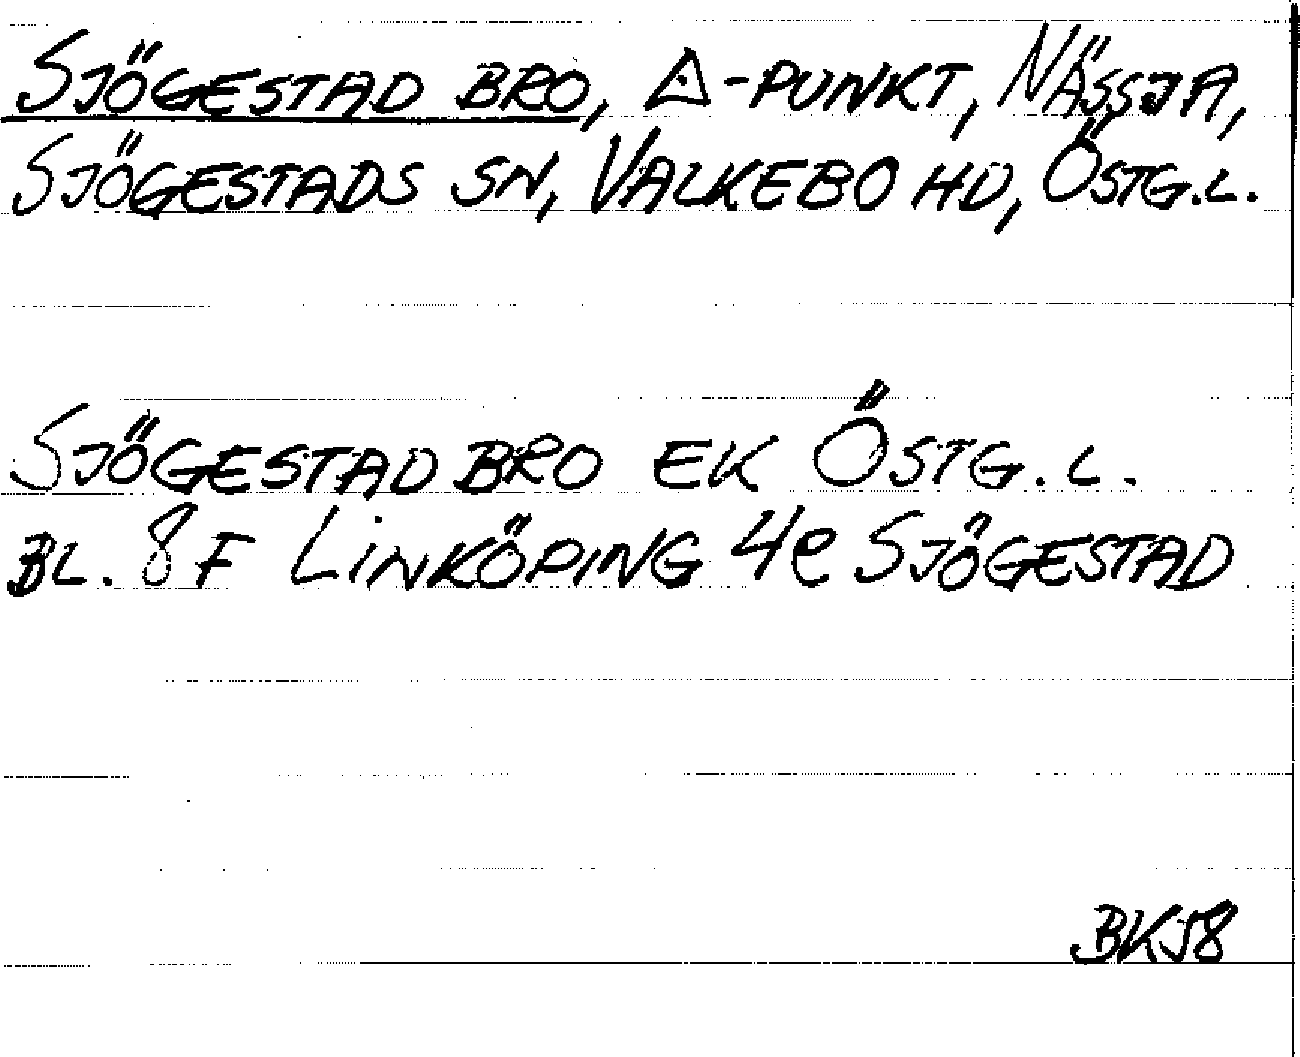 SJÖGESTAD BRO, △-PUNKT, NÄSSJA,
SJÖGESTADS SN, VALKEBO HD, ÖSTG.L.
SJÖGESTAD BRO EK ÖSTG.L.
BL. 8 F LINKÖPING 4e SJÖGESTAD
BKS8